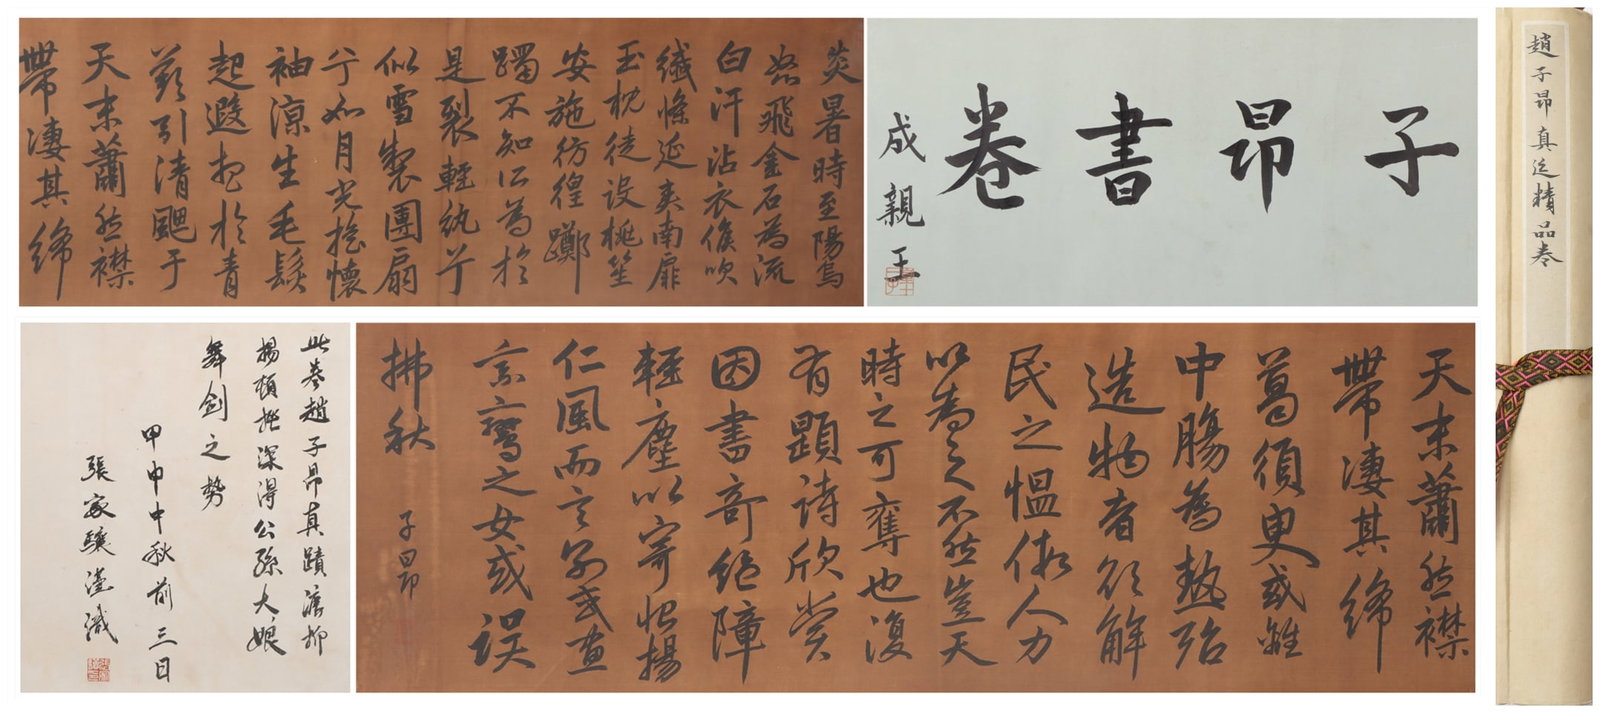 趙子昂真迹精品卷
子昂書卷
成親王
炎暑時至陽烏
怒飛金石為流
白汗沾衣倏吹
纖絺延爽南扉
玉枕徒设桃笙
安施彷徨躑
躅不知所為於
是裂輕紈兮
似雪製團扇
兮如月光搖懷
袖凉生毛髮
起遐想於青
蘋引清飔于
天末蕭然襟
帶淒其絺
天末蕭然襟
帶淒其絺
葛須臾或雖
中腸為熱殆
造物者欲解
民之愠假人力
以為之不然豈天
時之可奪也復
有題詩欣賞
因書奇絕障
輕塵以寄怅揚
仁風而言别或畫
京鸞之女或误
拂秋
子昂
此卷趙子昂真蹟瀼抑
揚頓挫深得公孫大娘
舞劍之势
甲申中秋前三日
張家驤謹識